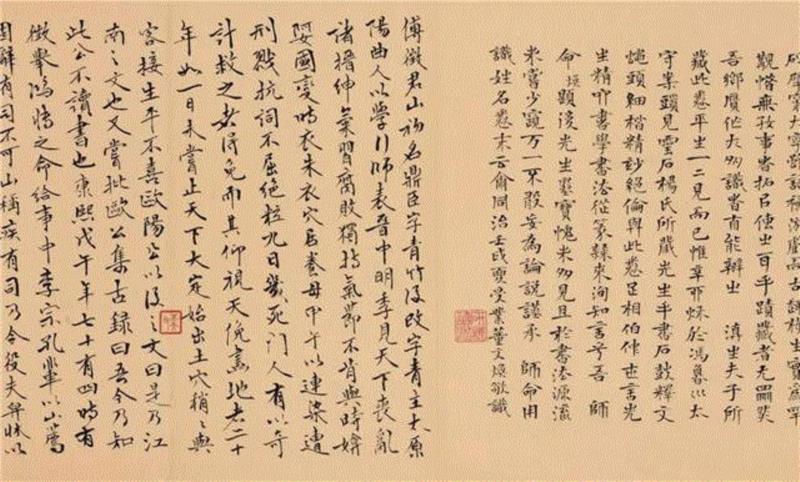 吾鄉贋作太多識者自能辨出 滇生夫子所
藏此卷平生一二見而已惟
守案頭見雲石楊氏所藏先生手書石鼓釋文
蠅頭細楷精妙絕倫與此卷足相伯仲世言先
生精書學書法從篆隸來洵知言吾 師
命顯後先生墨寶愧未多見且於書法源流
未嘗少窺萬一不敢妄為論說謹承 師命用
識姓名卷末云爾同治壬戌夏受業董文煥敬識
傅徵君山初名鼎臣字青竹後改字青主太原
陽曲人以學行師表晉中明季見天下喪亂
諸搢紳氣習腐敗獨持氣節不肯與時媕
娿國變時衣朱衣穴居養母甲午以連染遭
刑戮抗詞不屈絕粒九日幾死門人有以奇
計救之者得免而其仰視天俛畫地者二十
年如一日未嘗止天下大定始出土穴稍稍與
客接生平不喜歐陽公以後之文曰是乃江
南之文也又嘗批歐公集古錄曰吾今乃知
此公不讀書也康熙戊午年七十有四時有
徵舉鴻博之命給事中李宗孔輩以山薦
固辭有司不可山稱疾有司乃令役夫舁牀以